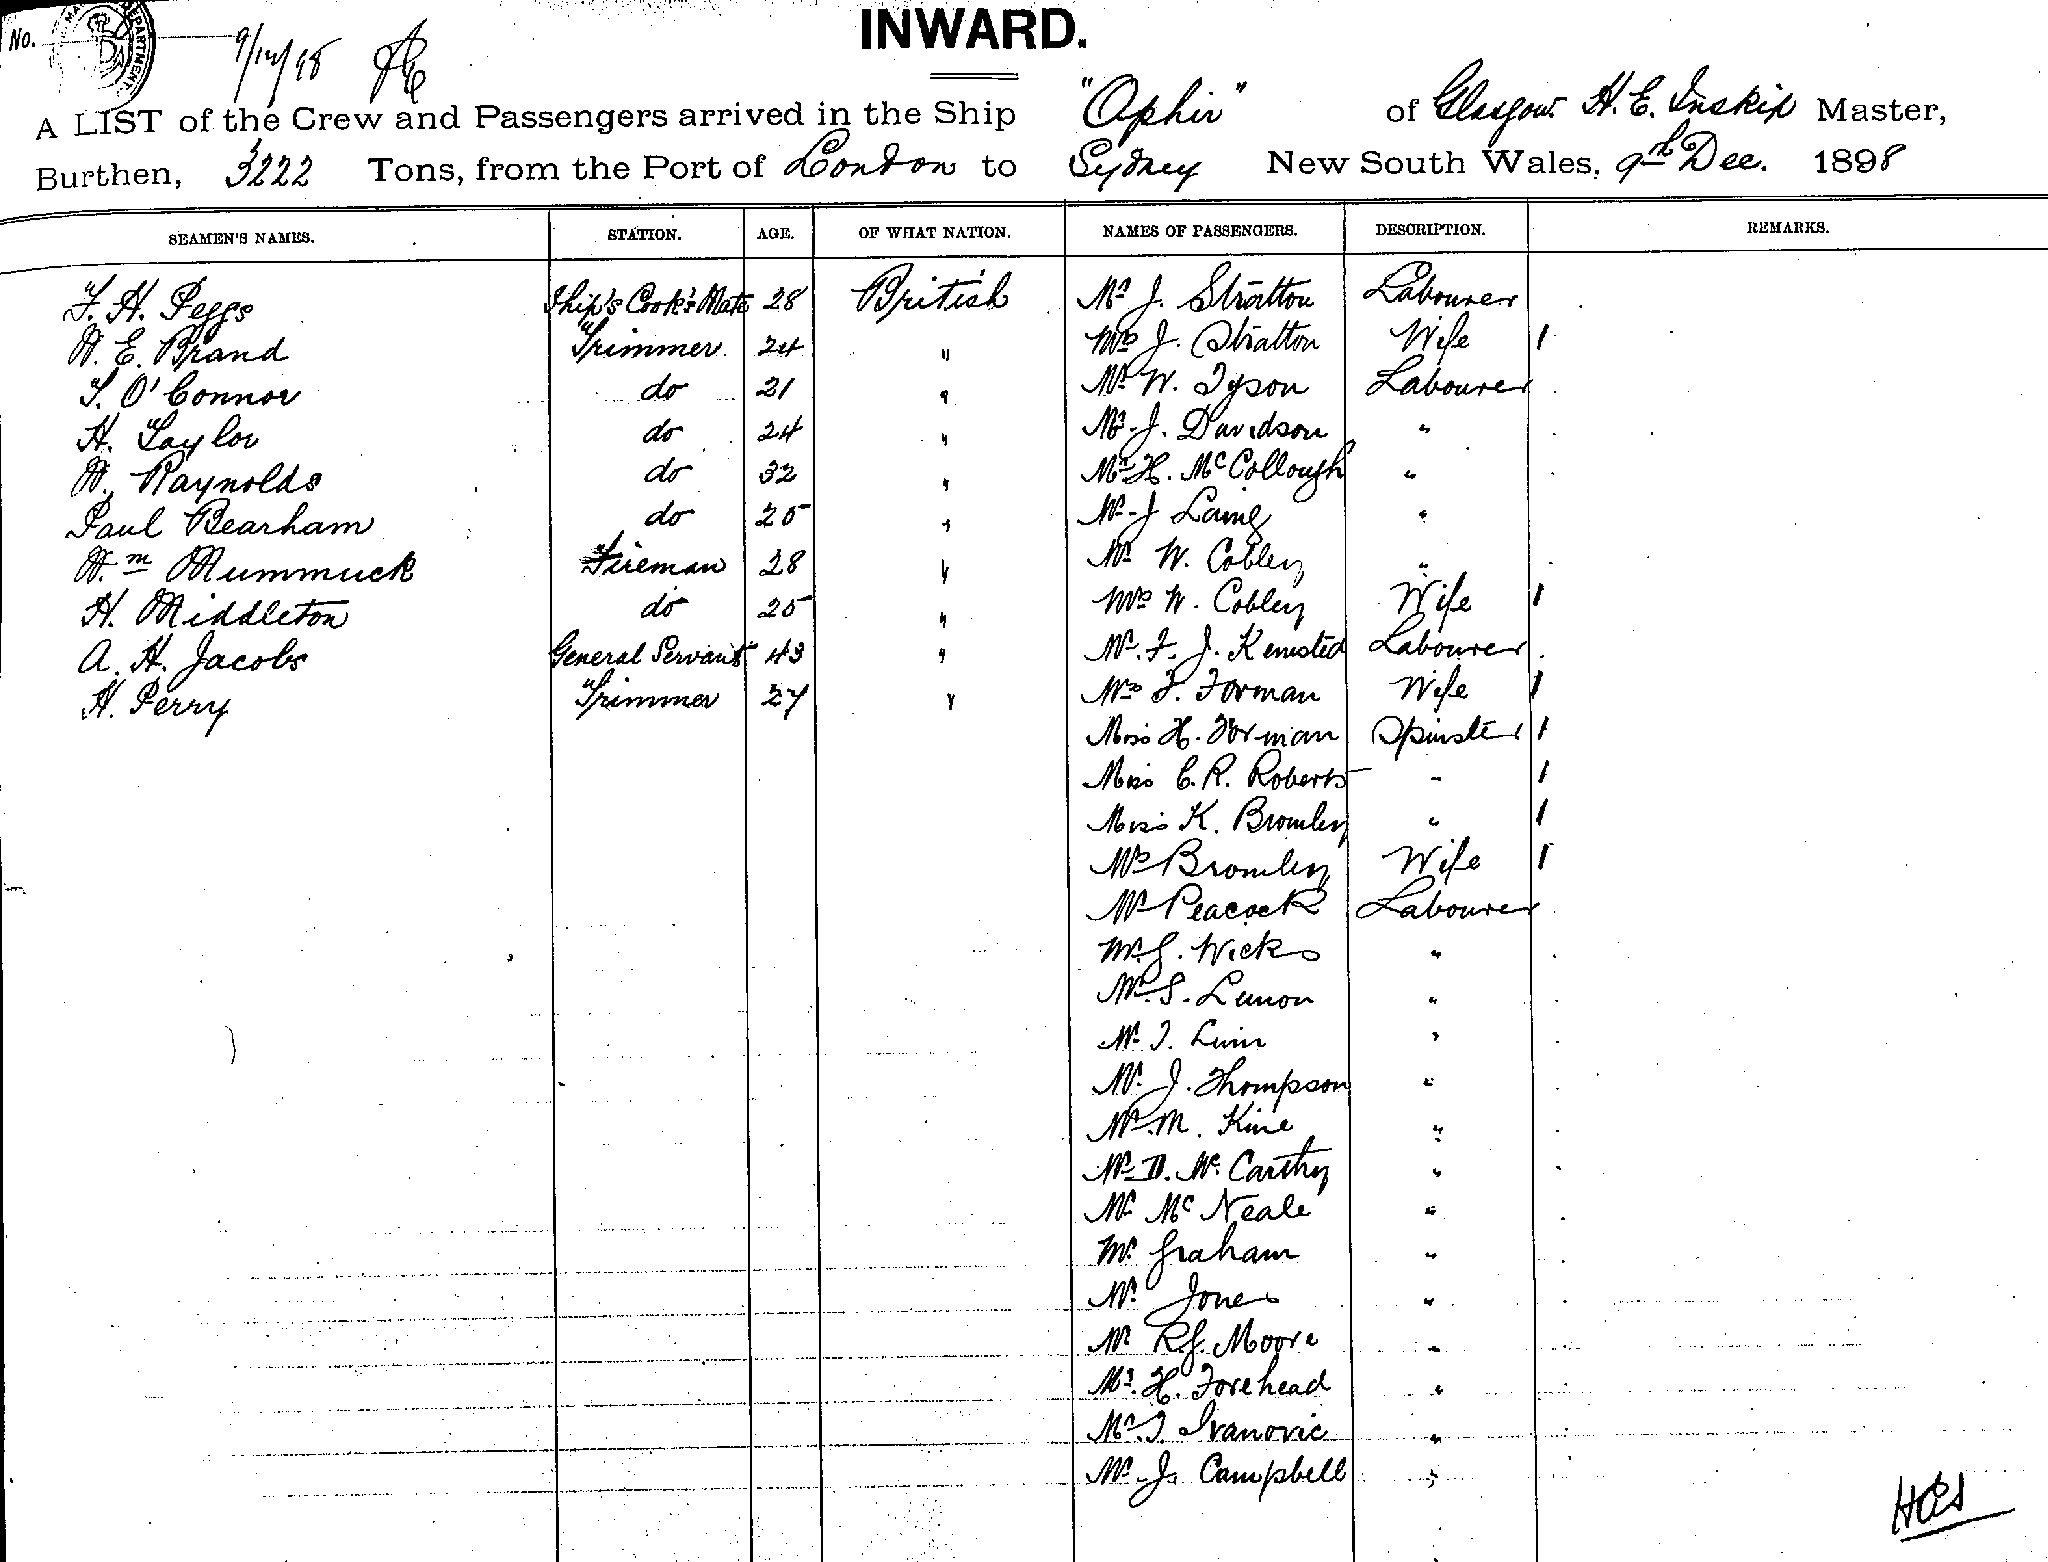 No.
9/12/98
INWARD.
A LIST of the Crew and Passengers arrived in the Ship "Ophir" of Glasgow H. E. Inskip Master,
Burthen, 3222 Tons, from the Port of London to Sydney New South Wales, 9th Dec. 1898
SEAMEN'S NAMES. STATION. AGE. OF WHAT NATION. NAMES OF PASSENGERS. DESCRIPTION. REMARKS.
F. H. Peggs Ship's Cook's Mate 28 British Mr J. Stratton Labourer
W. E. Brand Trimmer 24 " Mrs J. Stratton Wife 1
T. O'Connor do 21 " Mr W. Tyson Labourer
H. Taylor do 24 " Mr J. Davidson "
W. Raynolds do 32 " Mr H. McCollough "
Paul Bearham do 25 " Mr J Laing "
Wm Mummuck Fireman 28 " Mr W. Cobley "
H. Middleton do 25 " Mrs W. Cobley Wife 1
A. H. Jacobs General Servant 43 " Mr F. J. Kemsted Labourer
H. Perry Trimmer 27 " Mrs F. Forman Wife 1
Miss H. Forman Spinster 1
Miss C. R. Roberts " 1
Miss K. Bromley " 1
Mrs Bromley Wife 1
Mr Peacock Labourer
Mr G. Wicks "
Mr S. Lemon "
Mr T. Linn "
Mr J. Thompson "
Mr M. Kine "
Mr D. McCarthy "
Mr McNeale "
Mr Graham "
Mr Jones "
Mr R.G. Moore "
Mr H. Forehead "
Mr I. Ivanovic "
Mr J. Campbell "